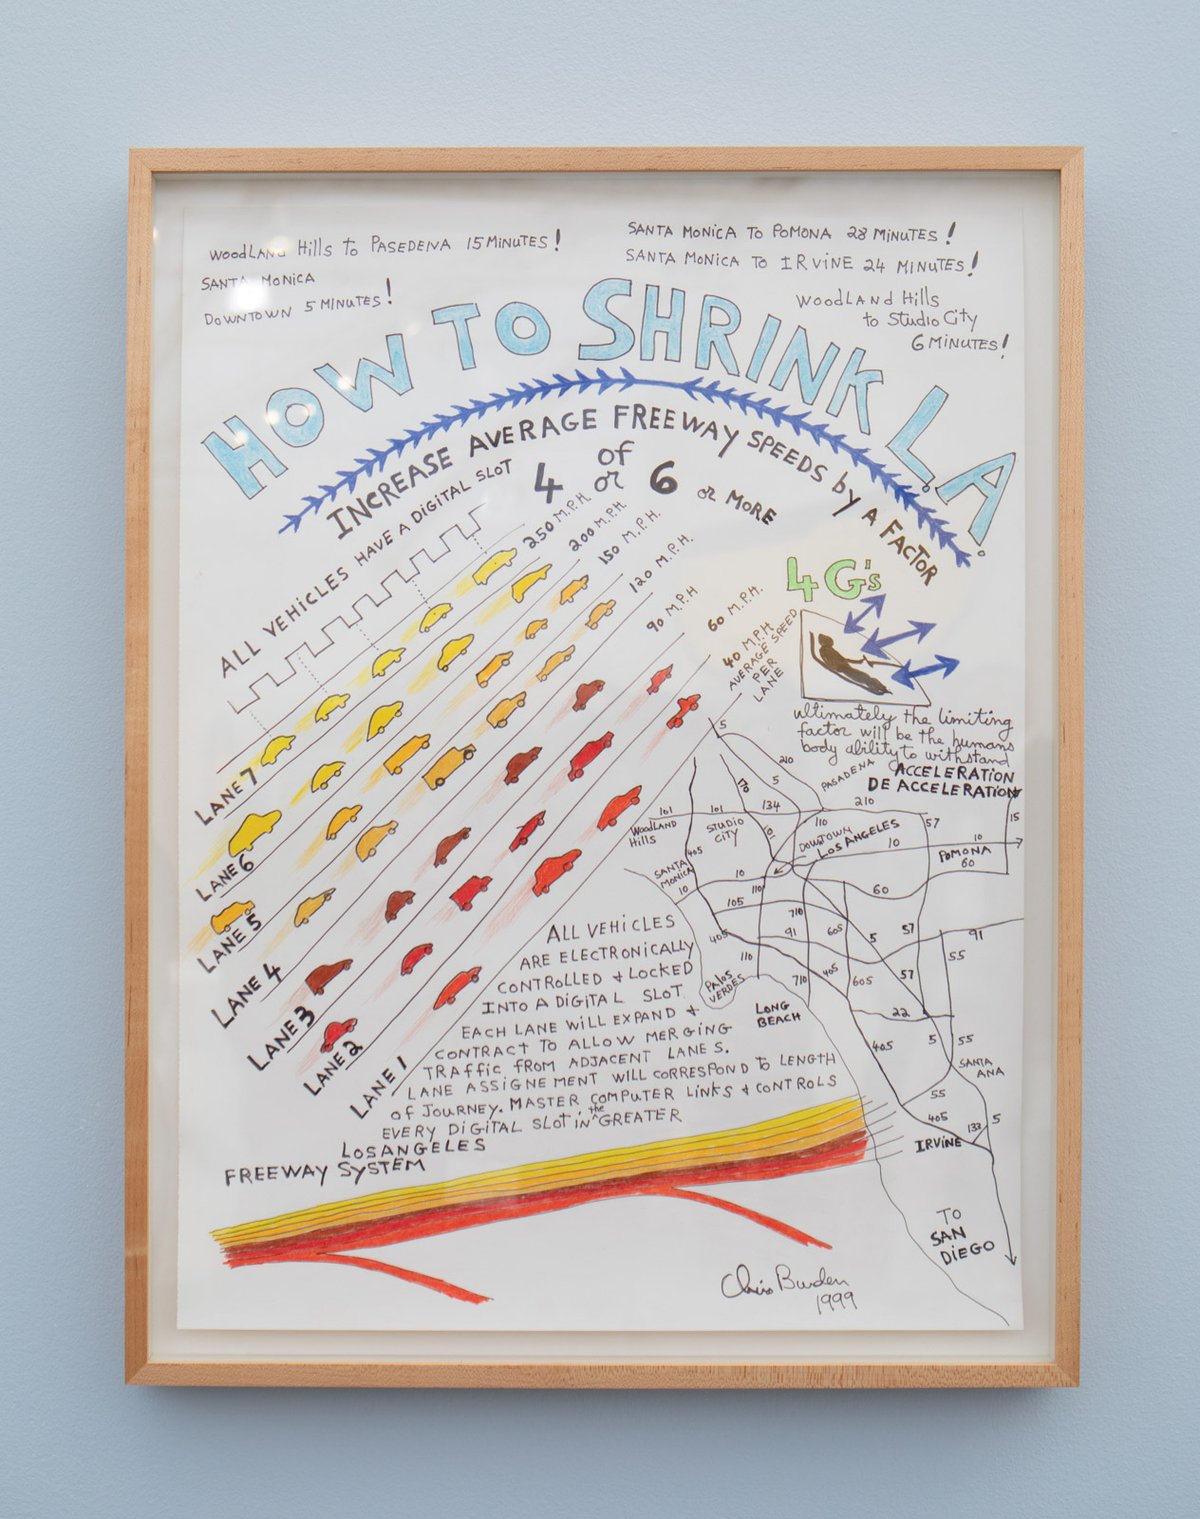 WOODLAND Hills to PASEDENA 15 MINUTES!
SANTA MONICA
DOWNTOWN 5 MINUTES!
SANTA MONICA TO POMONA 28 MINUTES!
SANTA MONICA TO IRViNE 24 MINUTES!
WOODLAND Hills
to Studio City
6 MINUTES!
HOW TO SHRINK L.A.
INCREASE AVERAGE FREEWAY SPEEDS by A FACTOR
of
4 or 6 or MORE
ALL VEHiCLES HAVE A DiGiTAL SLOT
250 M.P.H.
200 M.P.H.
150 M.P.H.
120 M.P.H.
90 M.P.H
60 M.P.H.
40 M.P.H.
AVERAGE SPEED
PER
LANE
LANE 7
LANE 6
LANE 5
LANE 4
LANE 3
LANE 2
LANE 1
4 G's
ultimately the limiting
factor will be the humans
body ability to withstand
ACCELERATION
DE ACCELERATION
5
210
PASADENA
5
170
134
210
101
101
101
110
57
15
WOODLAND
Hills
STUDIO
CITY
DOWNTOWN
LOS ANGELES
10
10
POMONA
60
405
SANTA
MONICA
10
10
110
60
105
710
405
91
605
5
57
91
110
55
PAlos
VERDES
710
405
605
57
LONG
BEACH
22
405
5
55
SANTA
ANA
55
405
133
5
IRViNE
TO
SAN
DIEGO
ALL VEHiCLES
ARE ELECTRONiCALLY
CONTROLLED + LOCKED
INTO A DiGiTAL SLOT.
EACH LANE WiLL EXPAND +
CONTRACT TO ALLOW MERGING
TRAFFIC FROM ADJACENT LANES.
LANE ASSIGNEMENT WILL CORRESPOND to LENGTH
OF JOURNEY. MASTER COMPUTER LINKS + CONTROLS
EVERY DIGITAL SLOT in the GREATER
LOS ANGELES
FREEWAY SYSTEM
Chris Burden
1999